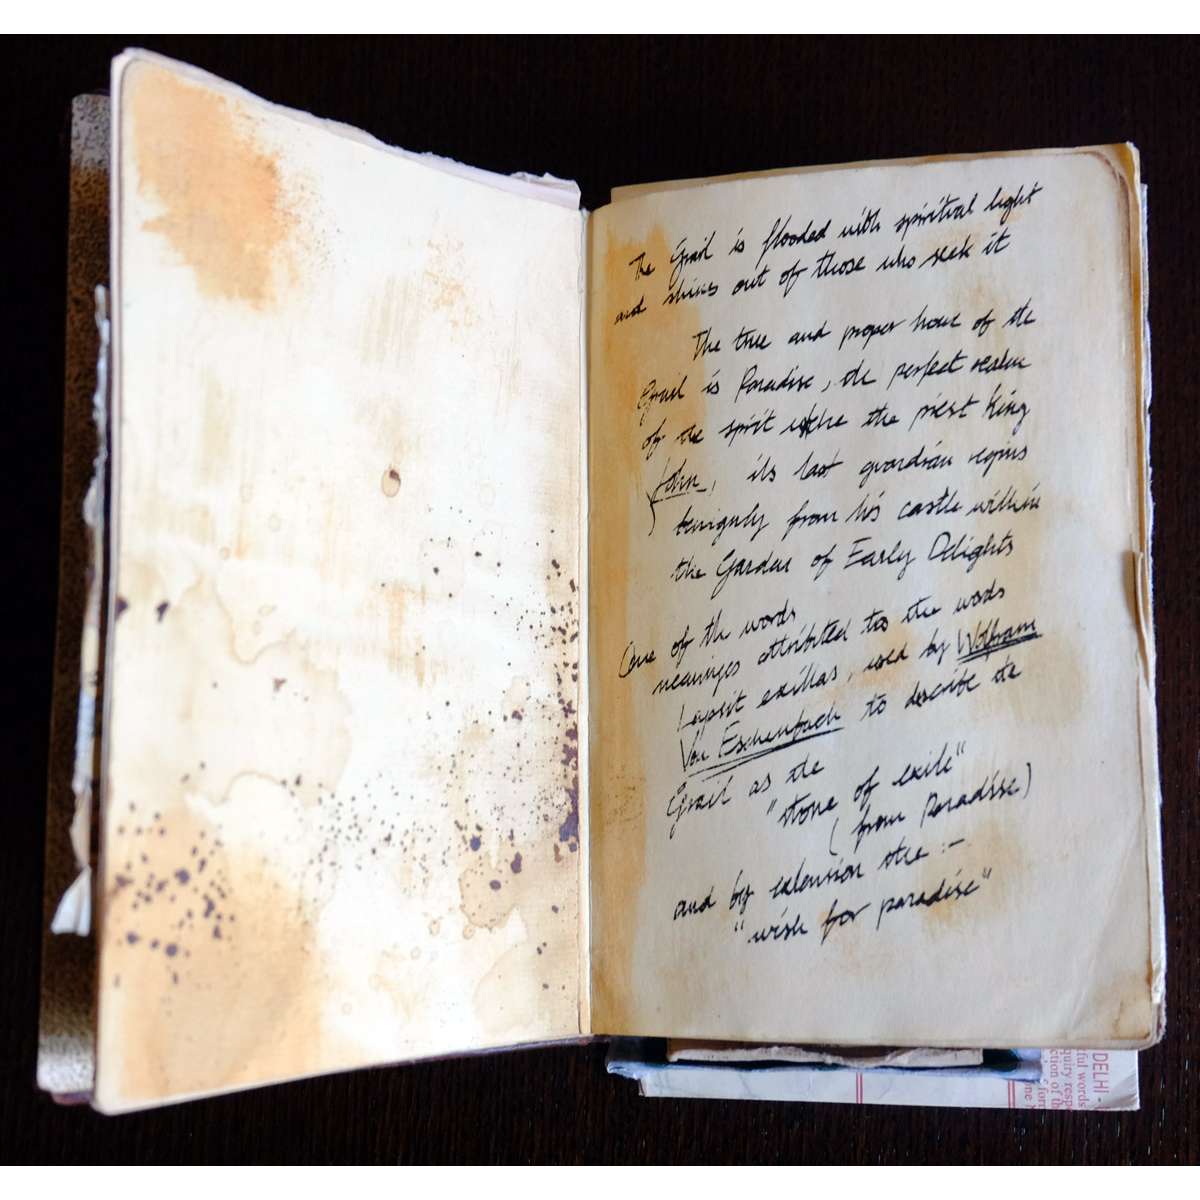 The Grail is flooded with spiritual light
and shines out of those who seek it
The true and proper home of the
Grail is Paradise, the perfect realm
of the spirit where the priest King
John, its last guardian reigns
benignly from his castle within
the Garden of Early Delights
One of the words
meanings attributed to the words
Lapsit exillas, used by Wolfram
Von Eschenbach to describe the
Grail as the
"stone of exile"
(from Paradise)
and by extension the :-
"wish for paradise"
DELHI -
ful words
quiry resp
ction of th
for
ne